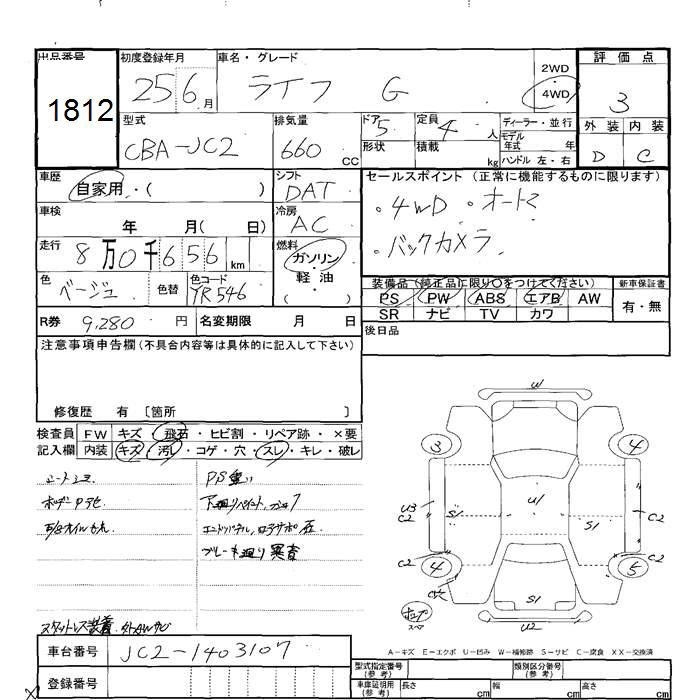 出品番号 初度登録年月 車名・グレード 評価点
1812 25 6月 ライフ G 2WD・4WD 3
型式 排気量 ドア 定員 ディーラー・並行 外装 内装
CBA-JC2 660 CC 5 4人 モデル年式 年 D C
形状 積載 kg ハンドル 左・右
車歴 自家用・( ) シフト DAT セールスポイント (正常に機能するものに限ります)
車検 年 月( 日) 冷房 AC ・4WD ・オートマ
走行 8万0千656km 燃料 ガソリン・軽油 ・バックカメラ
( )
色 ベージュ 色替 色コード YR546 装備品(純正品に限り○をつけてください) 新車保証書
PS PW ABS エアB AW 有・無
R券 9,280円 名変期限 月 日 SR ナビ TV カワ
注意事項申告欄(不具合内容等は具体的に記入して下さい) 後日品
修復歴 有 〔箇所 〕
検査員 FW キズ・飛石・ヒビ割・リペア跡・×要
記入欄 内装 キズ・汚レ・コゲ・穴・スレ・キレ・破レ
シートシミ PS重い
下廻リペイント、
ブレーキ廻り異音
スタットレス装着
W
3 4
U3 C2 S1 U1 S1 C2
C2 4 5 C2
S1
U2
A-キズ E-エクボ U-凹み W-補修跡 S-サビ C-腐食 XX-交換済
車台番号 JC2-1403107
登録番号
型式指定番号(参考) 類別区分番号(参考)
車庫証明用(参考) 長さ cm 幅 cm 高さ cm